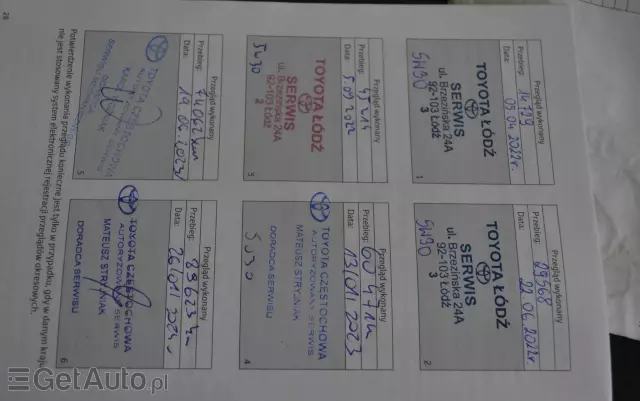 Przegląd wykonany
Przebieg: 14.729
Data: 05.04.2022r.
TOYOTA ŁÓDŹ
SERWIS
ul. Brzezińska 24A
92-103 Łódź
3
5W30
1
Przegląd wykonany
Przebieg: 29568
Data: 22.06.2022r.
TOYOTA ŁÓDŹ
SERWIS
ul. Brzezińska 24A
92-103 Łódź
3
5W30
2
Przegląd wykonany
Przebieg:
Data:
TOYOTA ŁÓDŹ
SERWIS
ul. Brzezińska 24A
92-103 Łódź
2
5W30
3
Przegląd wykonany
Przebieg:
Data: 13.01.2023
TOYOTA CZĘSTOCHOWA
AUTORYZOWANY SERWIS
MATEUSZ STRYJNIAK
DORADCA SERWISU
5W30
4
Przegląd wykonany
Przebieg:
Data: 19.06.2023
TOYOTA CZĘSTOCHOWA
5
Przegląd wykonany
Przebieg:
Data: 26.01.2024
TOYOTA CZĘSTOCHOWA
AUTORYZOWANY SERWIS
MATEUSZ STRYJNIAK
DORADCA SERWISU
6
Potwierdzenie wykonania przeglądu konieczne jest tylko w przypadku, gdy w danym kraju
nie jest stosowany system elektronicznej rejestracji przeglądów okresowych.
28
GetAuto.pl